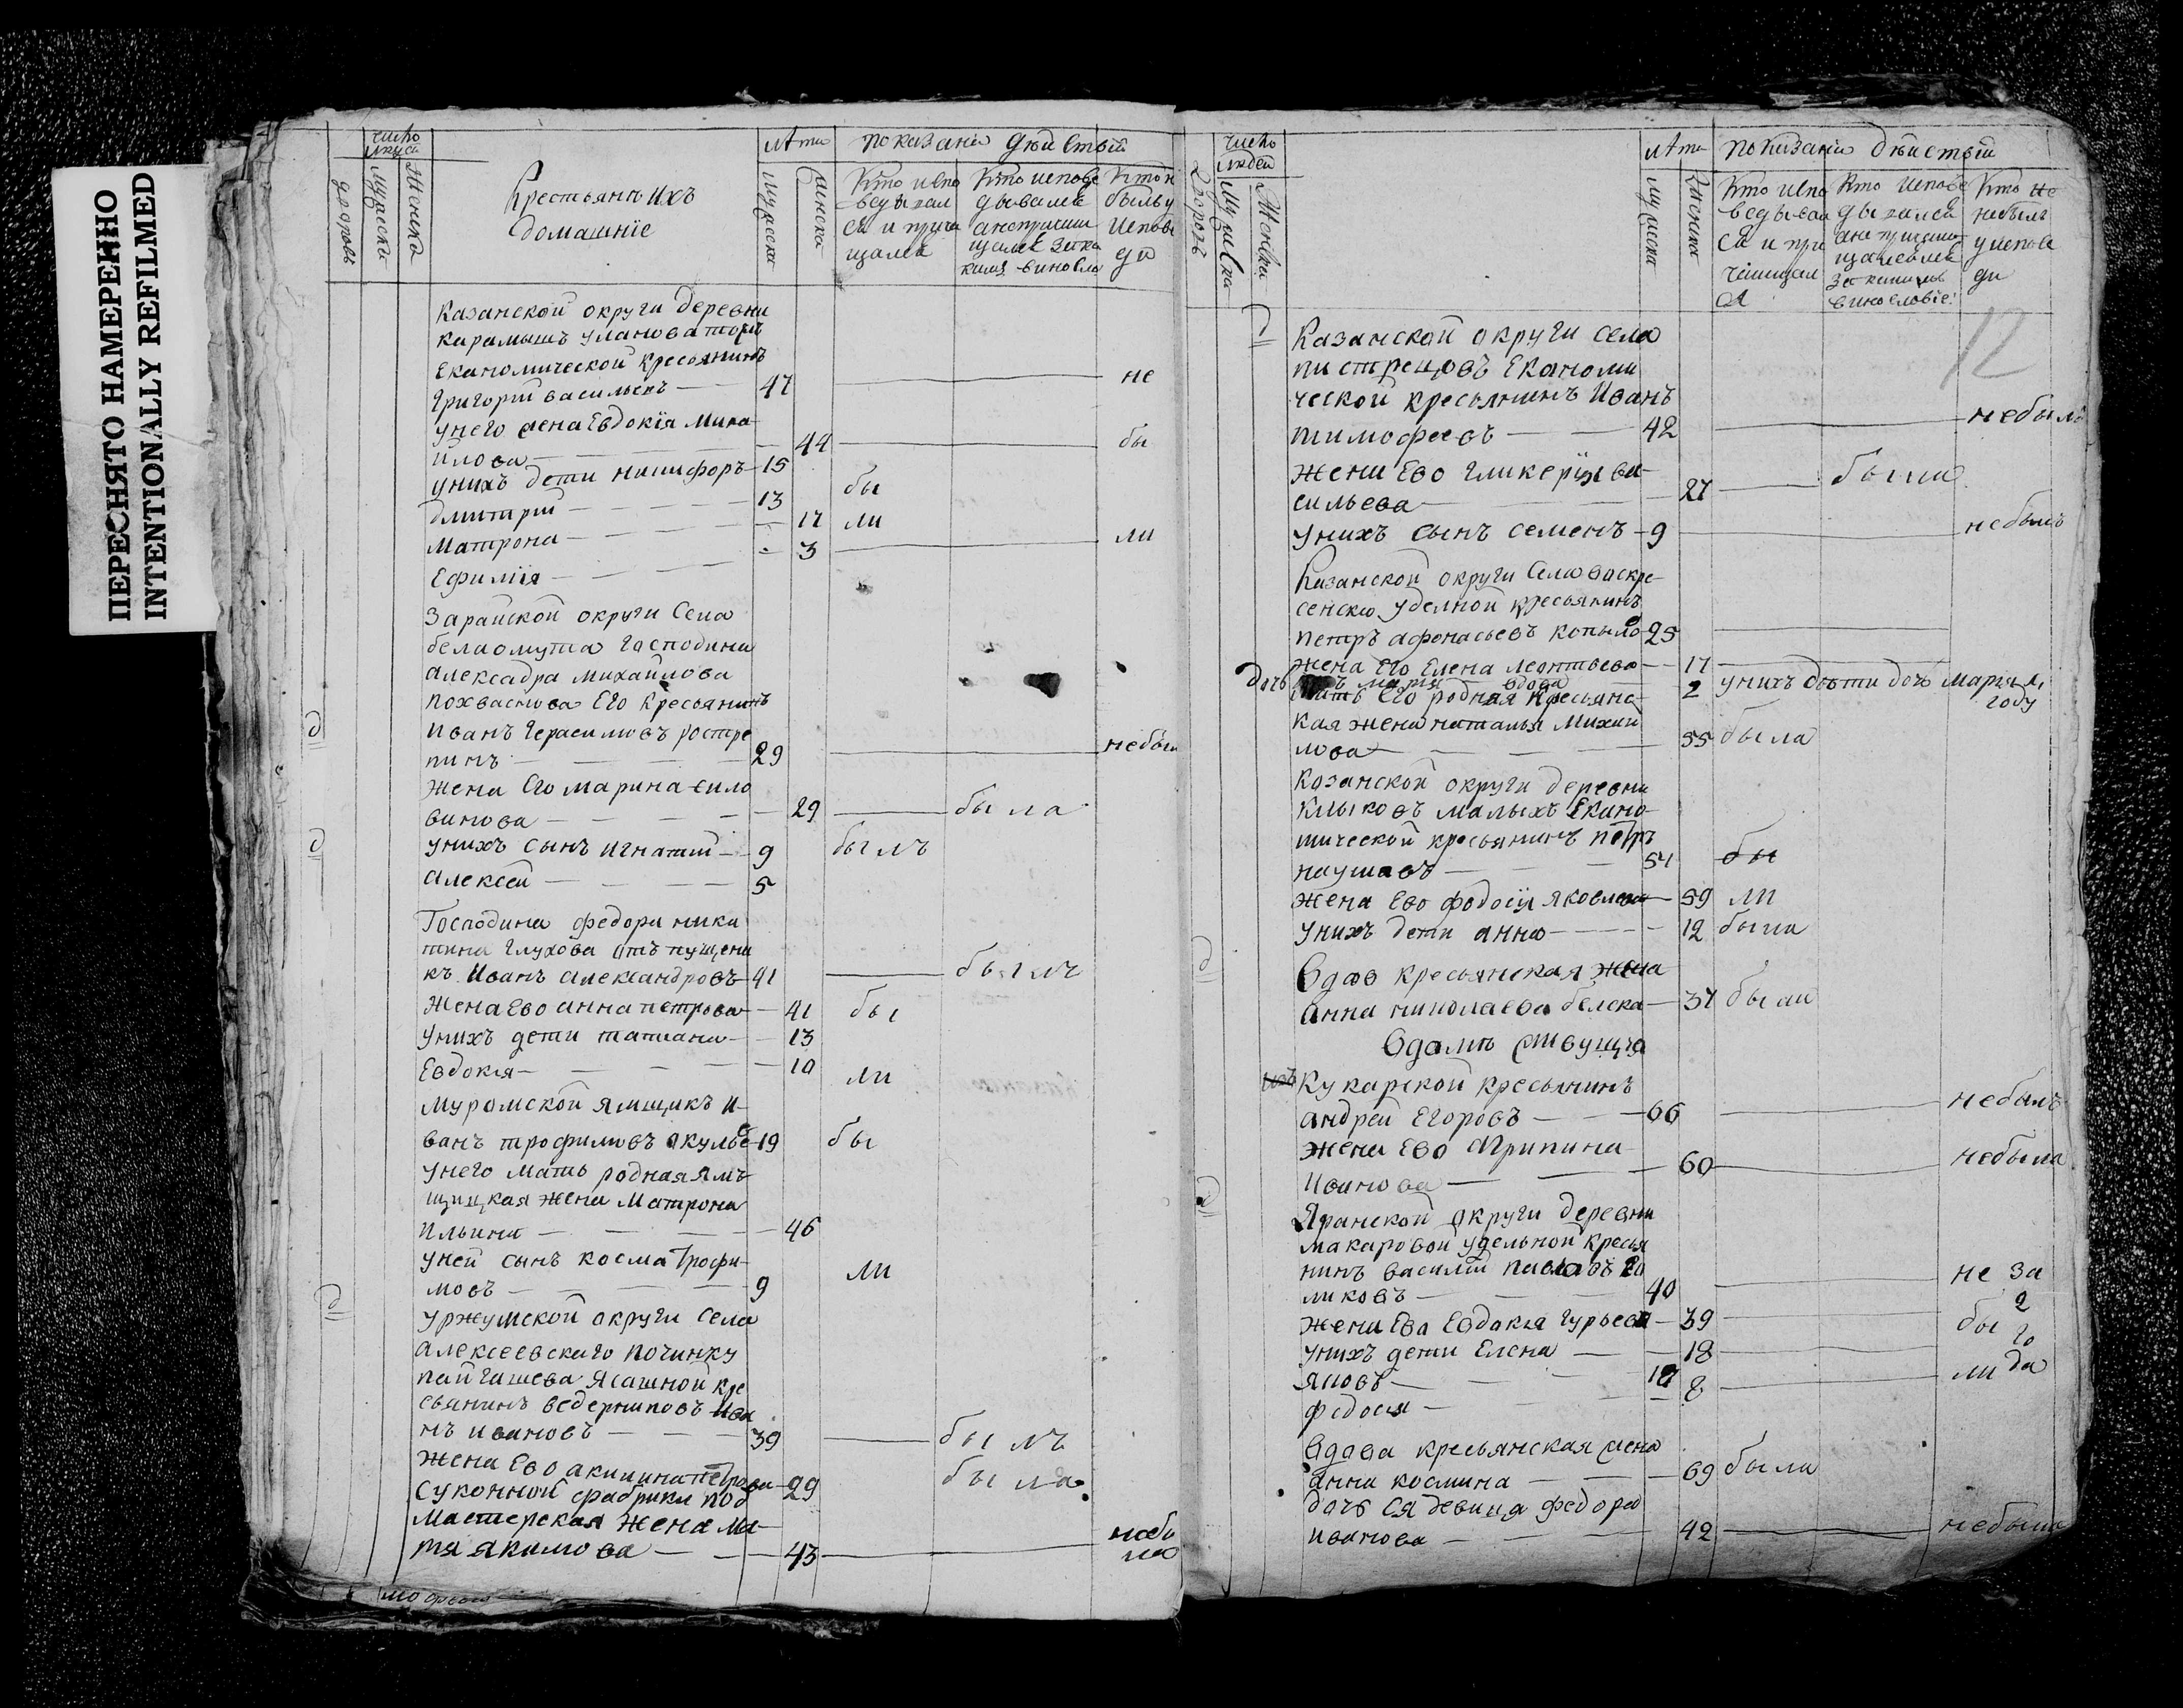 ПЕРЕСНЯТО НАМЕРЕННО
INTENTIONALLY REFILMED
число
мужска
Женска
Крестьянъ ихъ
домашніе
лѣта
мужеска
показаніи дѣиствій
Кто испо
ведывал
ся и прича
щался
Кто испове
дывался
щался за ка
кимъ винослов
испове
ди
Казанской округи деревни
Еканомической кресьянинъ
Григорій васильевъ 47 не
унего жена Евдокія миха
илова 44 бы
унихъ дети никифоръ 15 бы
дмитрій 13
Матрона 17 ли
Ефимія 3 ли
Зарайской округи Села
белаомута Господина
алексадра михаилова
похвиснева Его кресьянинъ
Иванъ Герасимовъ ростре
пинъ 29 небыл
жена Его марина сило
винова 29 была
унихъ сынъ игнатій 9 былъ
алексей 5
Господина федора ники
тина Глухова отъпущени
къ Иванъ александровъ 41 былъ
жена Ево анна петрова 41 бы
унихъ дети татиана 13
Евдокія 10 ли
муромской ямщикъ и
ванъ трофимовъ акулье 19 бы
унего мать родная ям
щицкая жена матрона
ильина 46
уней сынъ косма трофи
мовъ 9 ли
уржумской округи села
алексеевскаго починку
пайгашева ясашной кре
сьянинъ ведерниковъ ива
нъ ивановъ 39 былъ
жена Ево акилина петрова 29 была
Суконной фабрики под
мастерская жена ма
якимова 43 небы
ла
число
людей
мужска
Женска
лѣта
мужеска
Женска
показаніи дѣиствій
Кто испо
ведывал
ся и при
чащал
ся
Кто испове
дывался
ане прича
щался
за какимъ
винословіе
Кто не
небылъ
уиспове
ди
12
Казанской округи села
пистрецовъ Еканоми
ческой кресьянинъ Иванъ
тимофеевъ 42 небылъ
жена Ево гликерія ва
сильева 27 была
унихъ сынъ семенъ 9 небылъ
Казанской округи Села васкре
сенско уделной кресьянинъ
петръ афонасьевъ копыло 25
жена Его Елена леонтьева 17
дочь мария 2 унихъ дѣти дочь мария 2
году
вдова
мать Его родная кресьянс
кая жена наталья михаи
лова 55 была
Казанской округи деревни
Клыковъ малыхъ Екано
мической кресьянинъ петръ
наумовъ 54 бы
жена Ево федосія яковлева 59 ли
унихъ дети анна 12 была
Вдов кресьянская жена
анна николаева белска 37 была
Вдомѣ
Кукарской кресьянинъ
андрей Егоровъ 66 небылъ
жена Ево Агрипина
Иванова 60 небыла
Яранской округи деревни
макаровой удельной кресья
нинъ василій павловъ
ликовъ 40 не за
жена Ева Евдакія гурьева 39 бы 2
го
унихъ дети Елена 18
яковъ ли да
федосья 8
Вдава кресьянская жена
анна космина 69 была
дочь Ея девица федора
иванова 42 небыла